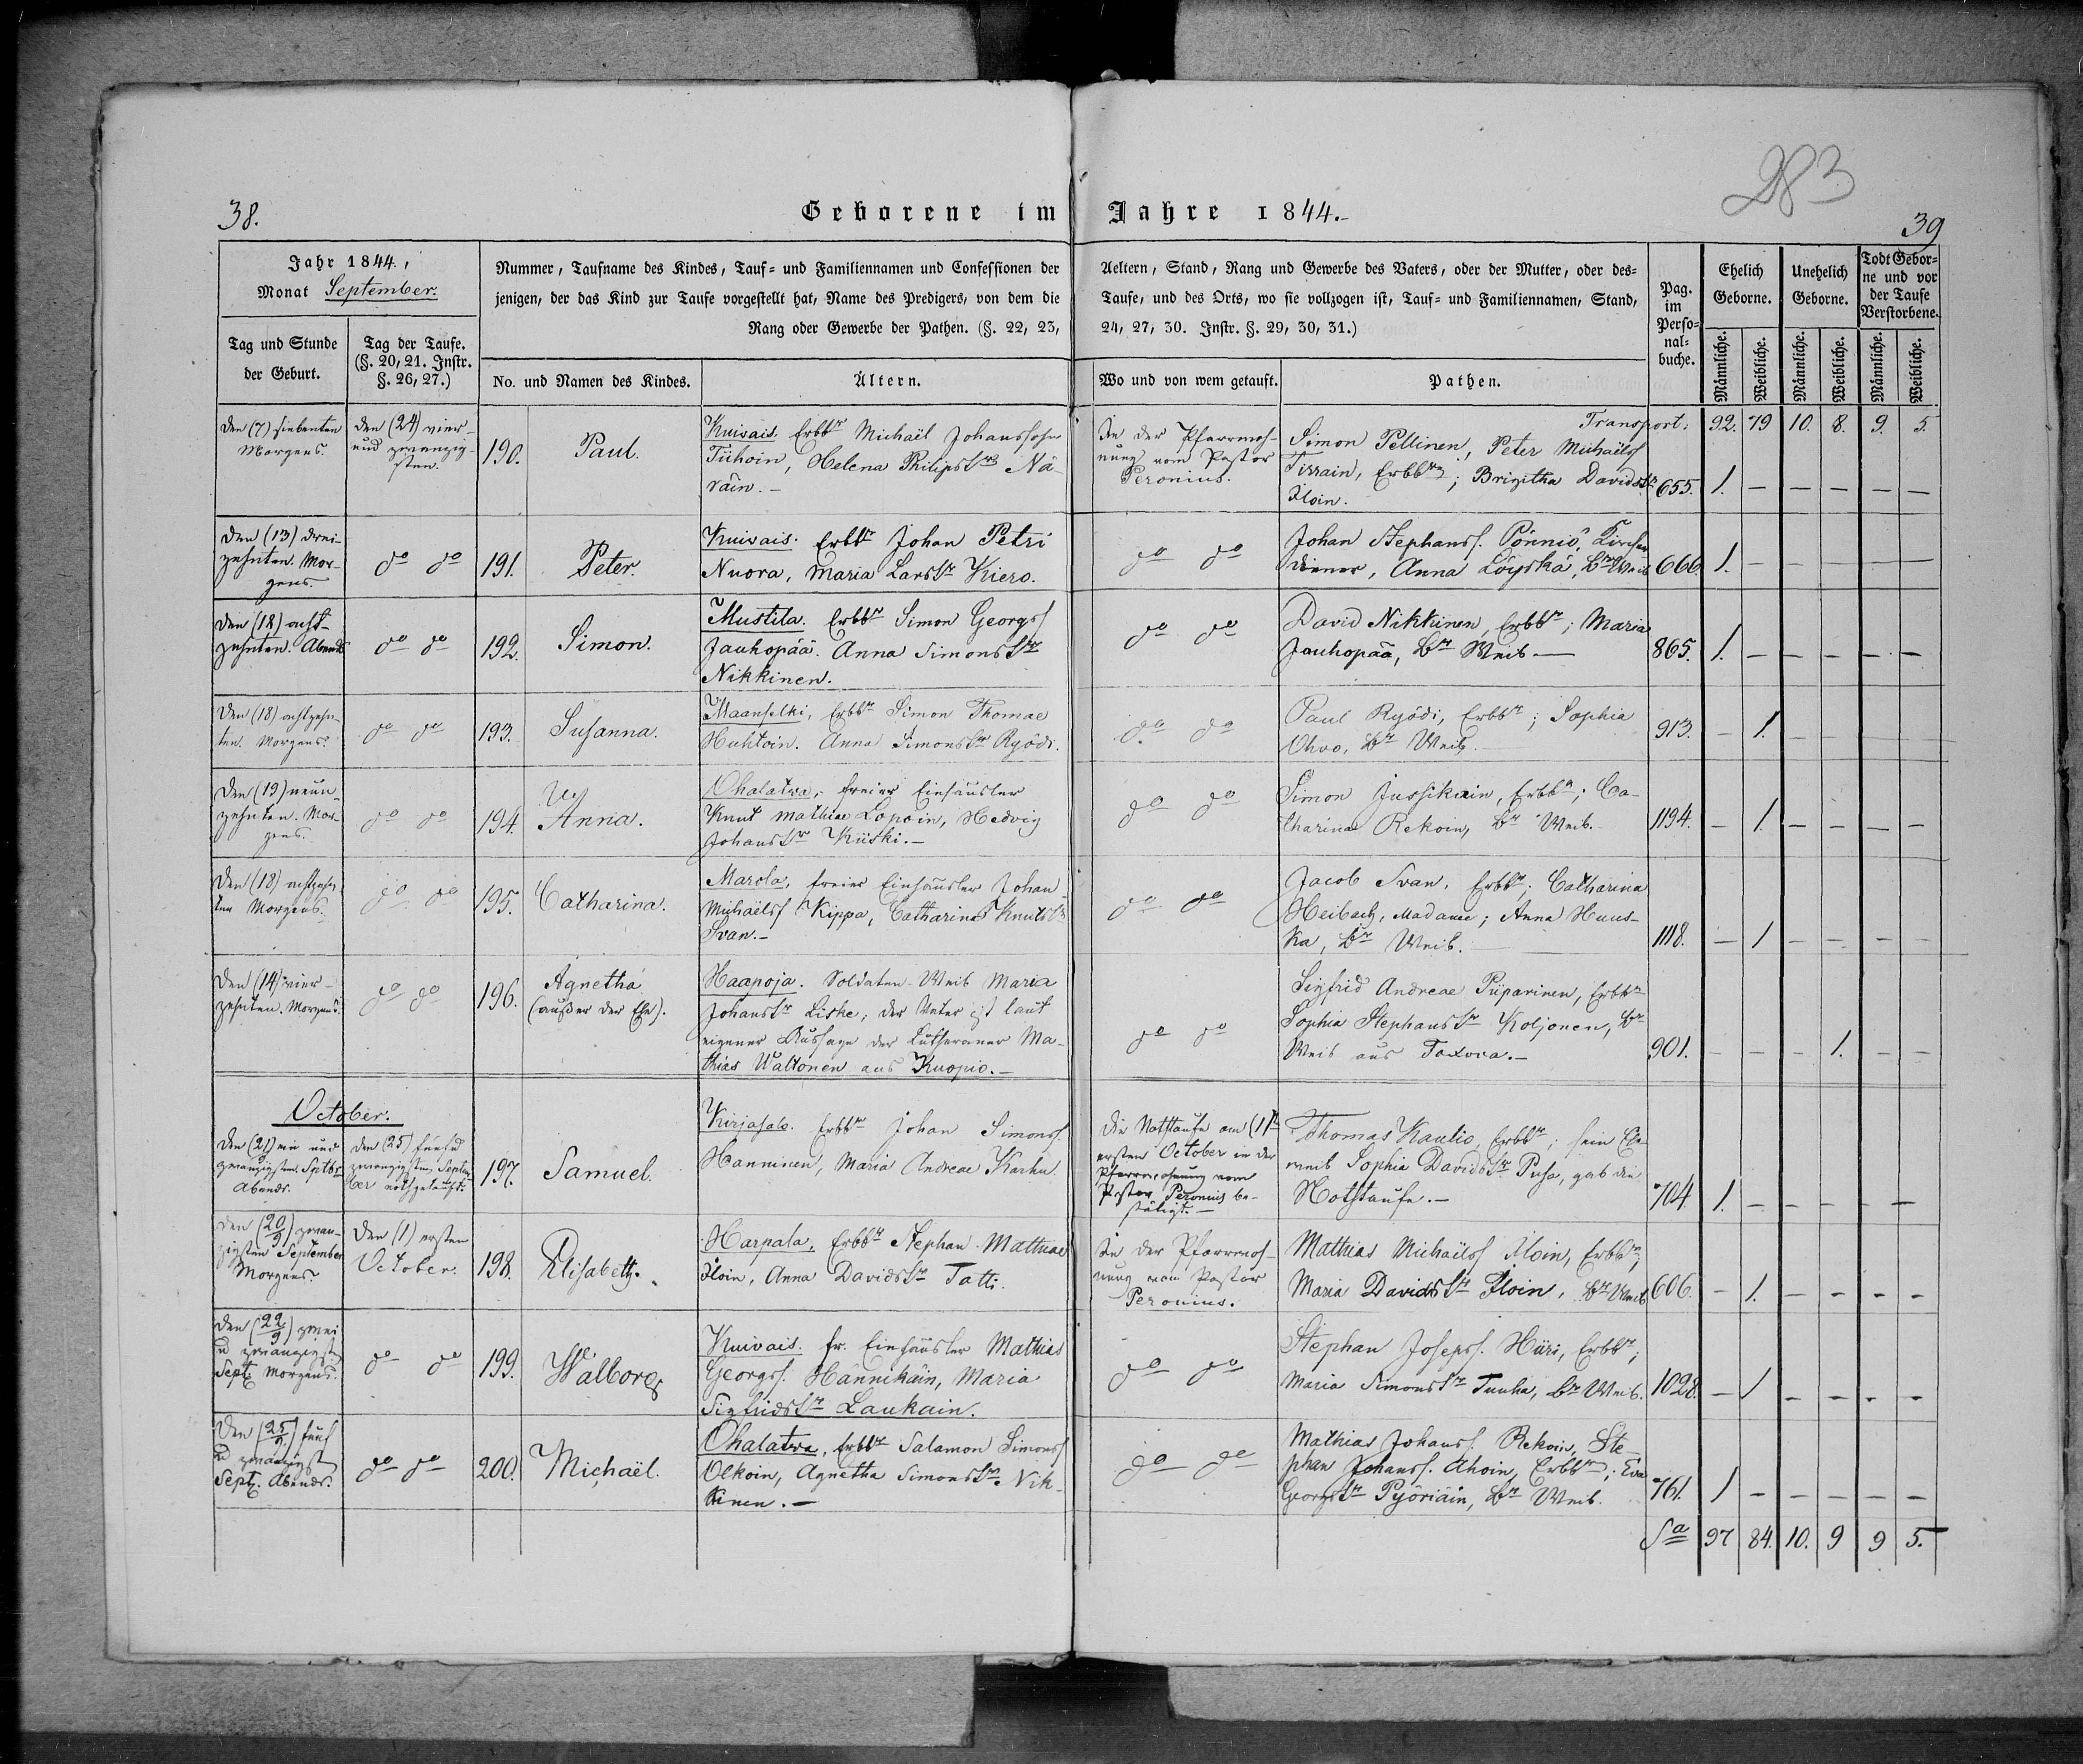 283
38.
Geborene im Jahre 1844.
39
Jahr 1844,
Monat September.
Nummer, Taufname des Kindes, Tauf- und Familiennamen und Confessionen der Aeltern, Stand, Rang und Gewerbe des Vaters, oder der Mutter, oder des-
jenigen, der das Kind zur Taufe vorgestellt hat, Name des Predigers, von dem die Taufe, und des Orts, wo sie vollzogen ist, Tauf- und Familiennamen, Stand,
Rang oder Gewerbe der Pathen. (§. 22, 23, 24, 27, 30. Instr. §. 29, 30, 31.)
Pag.
im
Perso-
nal-
buche.
Ehelich
Geborne.
Unehelich
Geborne.
Todt Gebor-
ne und vor
der Taufe
Verstorbene.
Tag und Stunde
der Geburt.
Tag der Taufe.
(§. 20, 21. Instr.
§. 26, 27.)
No. und Namen des Kindes.
Ältern.
Wo und von wem getauft.
Pathen.
Männliche.
Weibliche.
Männliche.
Weibliche.
Männliche.
Weibliche.
Transport: 92. 79 10. 8. 9. 5.
Den (7) siebenten
Morgens.
den (24) vier-
und zwanzig-
sten.
190.
Paul.
Kuivais. Erbbr Michaël Johanssohn
Tiihoin, Helena Philipstr Nä-
räin.-
In der Pfarrwoh-
nung vom Pastor
Peronius.
Simon Pellinen, Peter Michaëlss
Tirrain, Erbbr; Brigitha Davidstr
Iloin.
655. 1. - - - - -
Den (13) drei-
zehnten. Mor-
gens.
do do
191.
Peter.
Kuivais. Erbbr Johan Petri
Nuora, Maria Larstr Kiero.
do do
Johan Stephanss. Pönniö, Kirchen
diener, Anna Löyskä, Br Weib
666. 1. - - - - -
Den (18) acht-
zehnten. Abends
do do
192.
Simon.
Mustila. Erbbr Simon Georgss
Jauhopää. Anna Simonstr
Nikkinen.
do do
David Nikkinen, Erbbr; Maria
Jauhopää, Br Weib -
865. 1. - - - - -
Den (18) achtzehn-
ten. Morgens.
do do
193.
Susanna.
Maanselki, Erbbr Simon Thomae
Huhtoin. Anna Simonstr Ryödi.
do do
Paul Ryödi, Erbbr; Sophia
Ohvo, Br Weib.
913. - 1. - - - -
Den (19) neun-
zehnten. Mor-
gens.
do do
194.
Anna.
Ohalatwa, freier Einhäusler
Knut Mathiae Lopoin, Hedvig
Johanstr Kiiski.-
do do
Simon Jussikain, Erbbr; Ca-
tharina Rekoin, Br Weib.
1194. - 1. - - - -
Den (18) achtzehn
ten Morgens.
do do
195.
Catharina.
Marola, freier Einhäusler Johan
Michaëlss Kippa, Catharina Knutstr
Svan.-
do do
Jacob Svan, Erbbr; Catharina
Heibach, Madame; Anna Huus-
ka, Br Weib.
1118. - 1 - - - -
Den (14) vier-
zehnten. Morgens.
do do
196.
Agnetha
(außer der Ehe).
Haapoja. Soldaten-Weib Maria
Johanstr Liske; der Vater ist laut
eigener Aussage der Lutheraner Ma-
thias Waltonen aus Kuopio.-
do do
Sigfrid Andreae Piiparinen, Erbbr
Sophia Stephanstr Koljonen, Br
Weib aus Toxova.-
901. - - - 1. - -
October.
Den (21) ein und
zwanzigsten Septbr
Abends.
Den (25) fünfu
zwanzigsten Septem
ber nothgetauft.
197.
Samuel.
Kirjasalo. Erbbr Johan Simonss.
Hanninen, Maria Andreae Karhu
Die Nothtaufe am (1)ten
ersten October in der
Pfarrwohnung vom
Pastor Peronius be-
stätigt.-
Thomas Kaulio, Erbbr; sein Ehe-
weib Sophia Davidstr Pusa, gab die
Nothtaufe.-
704. 1. - - - - -
Den (20/9) zwan-
zigsten September
Morgens.
Den (1) ersten
October.
198.
Elisabeth.
Harpala. Erbbr Stephan Mathiae
Iloin, Anna Davidstr Tatti.
In der Pfarrwoh-
nung vom Pastor
Peronius.
Mathias Michaëlss Iloin, Erbbr;
Maria Davidstr Iloin, Br Weib
606. - 1. - - - -
Den (22/9) zwei
u zwanzigst
Sept. Morgens.
do do
199.
Walborg
Kuivais. fr. Einhäusler Mathias
Georgss. Hännikäin, Maria
Sigfridstr Laukain.
do do
Stephan Josepss. Häri, Erbbr;
Maria Simonstr Tuuha, Br Weib.
1028. - 1 - - - -
Den (25/9) fünf
u zwanzigst
Sept. Abends.
do do
200.
Michaël.
Ohalatwa, Erbbr Salamon Simonss
Olkoin, Agnetha Simonstr Nik-
kinen.-
do do
Mathias Johanss. Rekoin, Ste-
phan Johanss. Ahoin, Erbbr; Eva
Georgstr Pyöriäin, Br Weib.
761. 1 - - - - -
Sa 97 84. 10. 9 9 5.